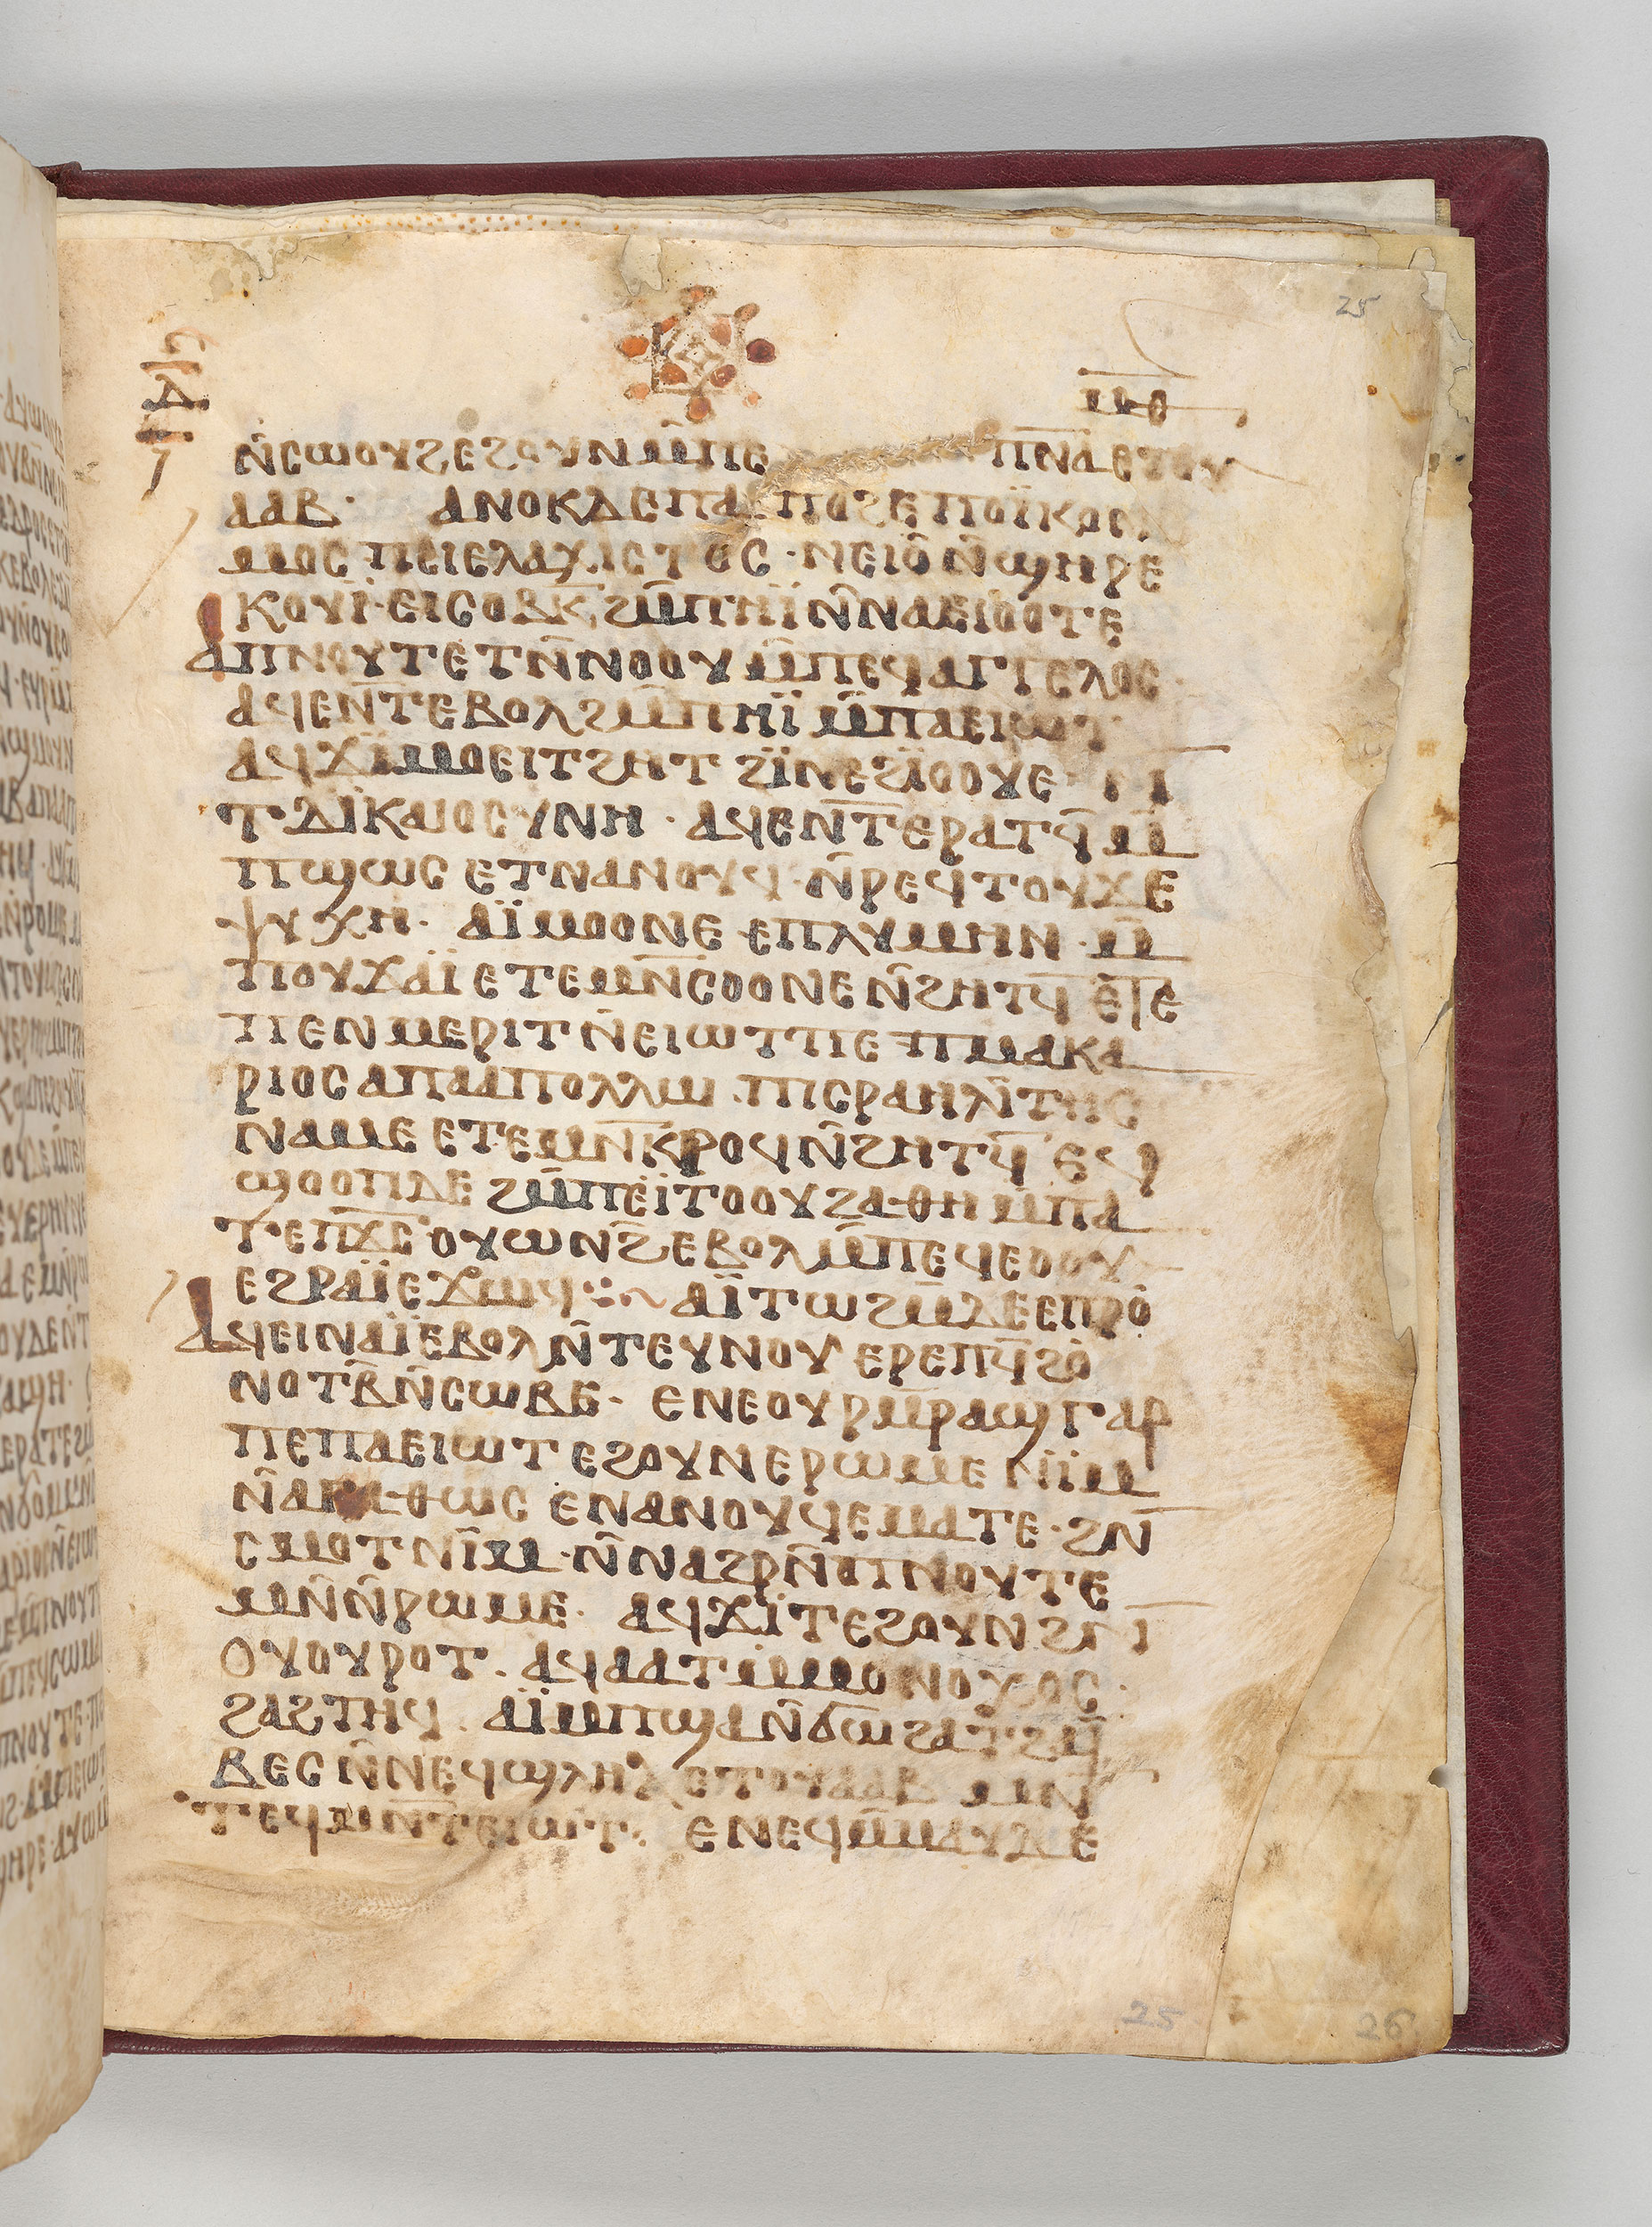 25
ⲙ̅ⲑ̅
ⲇ̅
ⲛ̄ⲥⲱⲟⲩϩ ⲉϩⲟⲩⲛ ⲙ̄ⲡⲉ ⲡⲛ̅ⲁ̅ ⲉⲧⲟⲩ
ⲁⲁⲃ· ⲁⲛⲟⲕ ⲇⲉ ⲡⲁⲡⲟϩⲉ ⲡⲟⲓ̈ⲕⲟⲛ
ⲙⲟⲥ ⲡⲉⲓⲉⲗⲁⲭⲓⲥⲧⲟⲥ· ⲛⲉⲓⲟ ⲛ̄ϣⲏⲣⲉ
ⲕⲟⲩⲓ̈· ⲉⲓⲥⲟⲃⲕ̅ ϩⲙ̄ⲡⲏⲓ̈ ⲛ̄ⲛⲁⲉⲓⲟⲧⲉ
ⲁⲡⲛⲟⲩⲧⲉ ⲧⲛ̄ⲛⲟⲟⲩ ⲙ̄ⲡⲉϥⲁⲅⲅⲉⲗⲟⲥ·
ⲁϥⲉⲛⲧ̅ ⲉⲃⲟⲗ ϩⲙ̄ⲡⲏⲓ̈ ⲙ̄ⲡⲁⲉⲓⲱⲧ
ⲁϥϫⲓ̈ⲙⲟⲉⲓⲧ ϩⲏⲧ ϩⲓ̈ⲛⲉϩⲓ̈ⲟⲟⲩⲉ
ⲧ·ⲇⲓⲕⲁⲓⲟⲥⲩⲛⲏ· ⲁϥⲉⲛⲧ̅ ⲉⲣⲁⲧϥ̄ ⲙ̄
ⲡϣⲱⲥ ⲉⲧⲛⲁⲛⲟⲩϥ· ⲛ̄ⲣⲉϥⲧⲟⲩϫⲉ
ⲯⲩⲭⲏ· ⲁⲓ̈ⲙⲟⲟⲛⲉ ⲉⲡⲗⲩⲙⲏⲛ· ⲙ̄
ⲡⲟⲩϫⲁⲓ̈ ⲉⲧⲉⲙⲛ̄ⲥⲟⲟⲛⲉ ⲛ̄ϩⲏⲧϥ̄ ⲉⲧⲉ
ⲡⲉⲛⲙⲉⲣⲓⲧ ⲛ̄ⲉⲓⲱⲧ ⲡⲉ ⲡⲙⲁⲕⲁ
ⲣⲓⲟⲥ ⲁⲡⲁ ⲁⲡⲟⲗⲗⲱ· ⲡⲓⲥⲣⲁⲏⲗⲓⲧⲏⲥ
ⲛⲁⲙⲉ ⲉⲧⲉⲙⲛ̄ⲕⲣⲟϥ ⲛ̄ϩⲏⲧϥ̄ ⲉϥ
ϣⲟⲟⲡ ⲇⲉ ϩⲙ̄ⲡⲉⲓ̈ⲧⲟⲟⲩ ϩⲁ·ⲑⲏ ⲙ̄ⲡⲁ
ⲧⲉⲡⲭ̅ⲥ̅ ⲟⲩⲱⲛϩ ⲉⲃⲟⲗ ⲙ̄ⲡⲉϥⲉⲟⲟⲩ
ⲉϩⲣⲁⲓ̈ ⲉϫⲱϥ ⁘ ⲁⲓ̈ⲧⲱϩⲙ̄ ⲇⲉ ⲉⲡⲣⲟ·
ⲁϥⲉⲓ ⲛⲁⲓ̈ ⲉⲃⲟⲗ ⲛ̄ⲧⲉⲩⲛⲟⲩ ⲉⲣⲉⲡϥ̄ϩⲟ
ⲛⲟⲧⲃ̄ ⲛ̄ⲥⲱⲃⲉ· ⲉⲛⲉⲟⲩⲣⲙ̄ⲣⲁϣ ⲅⲁⲣ
ⲡⲉ ⲡⲁⲉⲓⲱⲧ ⲉϩⲟⲩⲛ ⲉⲣⲱⲙⲉ ⲛⲓ̈ⲙ
ⲛ̄ⲁⲅⲁ·ⲑⲱⲥ ⲉⲛⲁⲛⲟⲩϥ ⲉⲙⲁⲧⲉ· ϩⲛ̄
ⲥⲙⲟⲧ ⲛⲓ̈ⲙ· ⲛ̄ⲛⲁϩⲣⲙ̄ⲡⲛⲟⲩⲧⲉ
ⲙⲛ̄ⲛ̄ⲣⲱⲙⲉ· ⲁϥϫⲓ̈ⲧ ⲉϩⲟⲩⲛ ϩⲛ̄
ⲟⲩⲟⲩⲣⲟⲧ· ⲁϥⲁⲁⲧ ⲙ̄ⲙⲟⲛⲟⲭⲟⲥ·
ϩⲁϩⲧⲏϥ· ⲁⲓ̈ⲙⲡϣⲁ ⲛ̄ϭⲱ ϩⲁⲧ·ϩⲁⲓ̈
ⲃⲉⲥ ⲛ̄ⲛⲉϥϣⲗⲏⲗ ⲉⲧⲟⲩⲁⲁⲃ ⲙⲛ̄
ⲧⲉϥⲙⲛ̄ⲧⲉⲓⲱⲧ· ⲉⲛⲉϥⲙ̄ⲙⲁⲩ ⲇⲉ
25
26